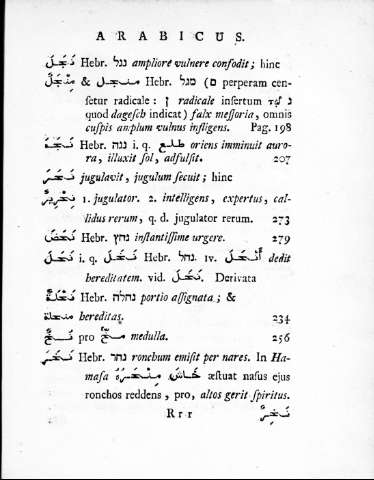 ARABICUS.
نَجَلَ Hebr. נגל ampliore vulnere confodit; hinc
مِنْجَلٌ & منجل Hebr. מגל (ם perperam cen-
setur radicale: ן radicale insertum נ
quod dagesch indicat) falx messoria, omnis
cuspis amplum vulnus infligens. Pag. 198
Hebr. נגה i. q. طلع oriens imminuit auro-
ra, illuxit sol, adfulsit. 207
نَحَرَ jugulavit, jugulum secuit; hinc
نِحْرِيرٌ 1. jugulator. 2. intelligens, expertus, cal-
lidus rerum, q. d. jugulator rerum. 273
نَحَضَ Hebr. נחץ instantissime urgere. 279
نَحَلَ i. q. نَحَلَ Hebr. נחל. IV. أَنْحَلَ dedit
hereditatem. vid. نَحَلَ. Derivata
نِحْلَةٌ Hebr. נחלה portio assignata; &
منحلة hereditas. 234
pro medulla. 256
نَخَرَ Hebr. נחר ronchum emisit per nares. In Ha-
masa مِنْخَرُهُ æstuat nasus ejus
ronchos reddens, pro, altos gerit spiritus.
Rrr